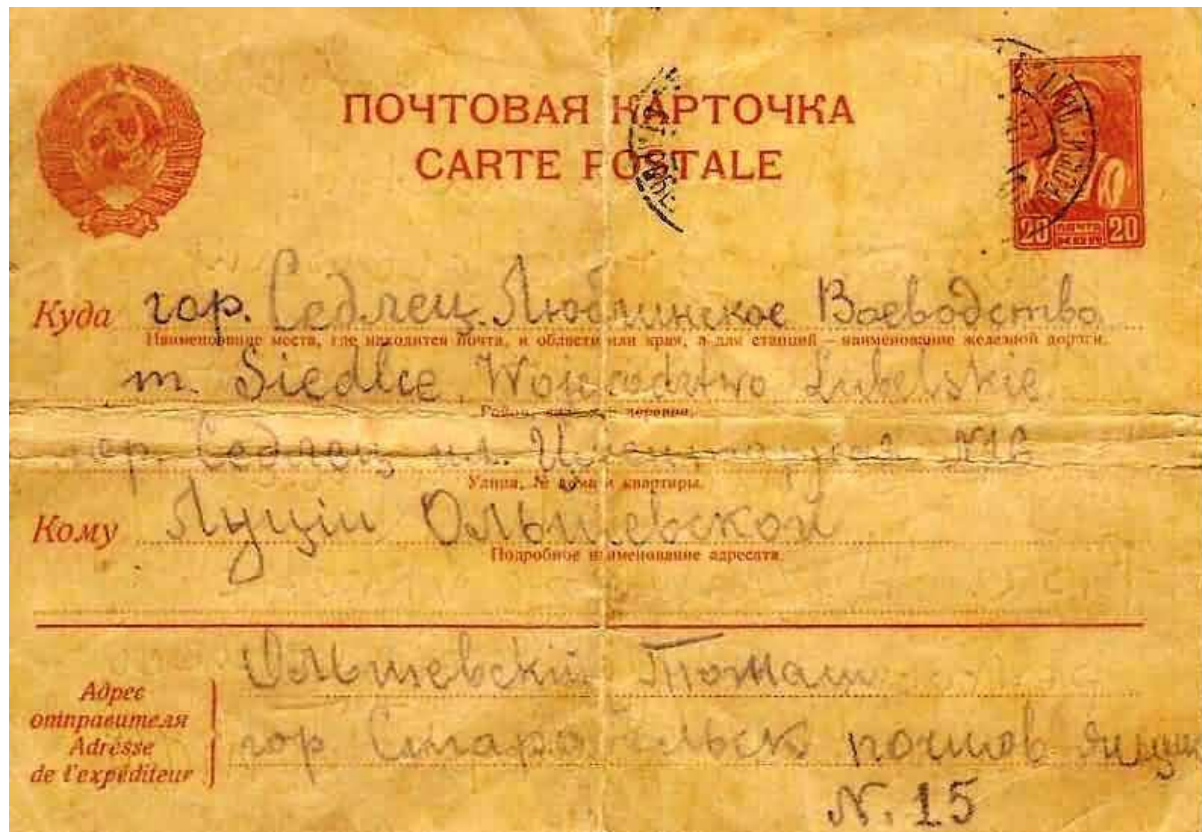 ПОЧТОВАЯ КАРТОЧКА
CARTE POSTALE
20 ПОЧТА КОП 20
Куда гор. Седлец. Люблинское Воеводство
Наименование места, где находится почта, и области или края, а для станций – наименование железной дороги.
m. Siedlce Wojewodztwo Lubelskie
Район, село или деревня.
гор. Седлец ул. №16
Улица, № дома и квартиры.
Кому Луціи Ольшевской
Подробное наименование адресата.
Ольшевскій Томаш
Адрес
отправителя
Adrésse
de l'expéditeur
гор Старобѣльск почтов ящик
N. 15